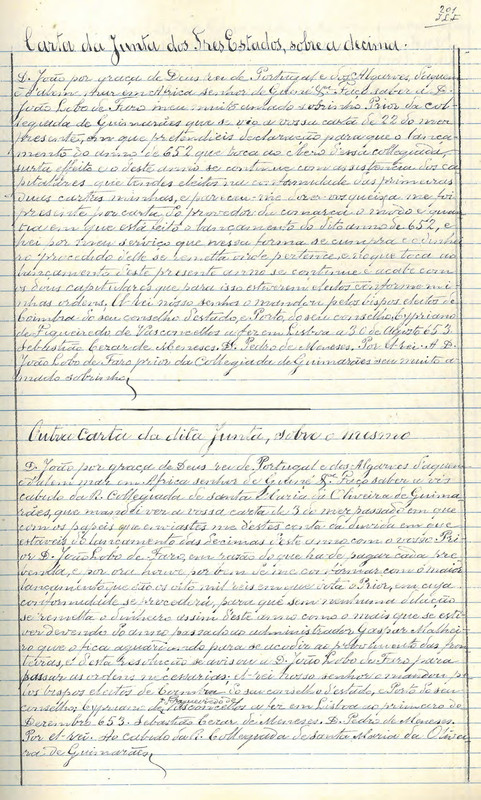 201
Carta da Junta dos Tres Estados, sobre a decima.
D. João por graça de Deus rei de Portugal e dos Algarves, daquem
e dalem mar em Africa senhor de Guiné &ª Faço saber a D.
João Lobo de Faro meu muito amado sobrinho Prior da col-
legiada de Guimarães que se viu a vossa carta de 22 do mez
presente, em que pedindeis declaração para que o lança-
mento do anno de 652 que toca ao clero d'essa collegiada,
surta effeito e o deste anno se continue com assistencia dos ca-
pitulares que tendes eleitos na conformidade das primeiras
duas cartas minhas, e pareceu-me dizer-vos que já me foi
presente por carta do provedor da comarca o modo e quan-
tia em que está feito o lançamento do dito anno de 652, e
hei por meu serviço que nessa forma se cumpra e o dinhei-
ro procedido delle se remetta onde pertence, e no que toca ao
lançamento d'este presente anno se continue e acabe com
os dous capitulares que para isso estiverem eleitos conforme mi-
nhas ordens. El-rei nosso senhor o mandou pelos bispos eleitos de
Coimbra do seu conselho d'estado, e Porto, do seu conselho, Cypriano
de Figueiredo de Vasconcellos a fez em Lisboa a 30 de Agosto 653.
Sebastião Cezar de Meneses. D. Pedro de Meneses. Por El-rei. A D.
João Lobo de Faro prior da Collegiada de Guimarães seu muito a-
mado sobrinho.
Outra carta da dita Junta, sobre o mesmo
D. João por graça de Deus rei de Portugal e dos Algarves daquem
e dalem mar em Africa senhor de Guiné &ª Faço saber a vós
cabido da R. Collegiada de santa Maria da Oliveira de Guima-
rães, que mandei ver a vossa carta de 3 do mez passado em que
com os papeis que enviastes me destes conta da duvida em que
estaveis do lançamento das decimas d'este anno com o vosso Pri-
or D. João Lobo de Faro, em razão do que ha de pagar cada pre-
benda, e por ora houve por bem de me conformar com o maior
lançamento que são os oito mil reis em que vota o Prior, em cuja
conformidade se procederá, para que sem nenhuma dilação
se remetta o dinheiro assim d'este anno como o mais que se esti-
ver devendo do anno passado ao administrador Gaspar Malhei-
ro que o fica aguardando para se acudir ao provimento das fron-
teiras, e d'esta resolução se avisou a D. João Lobo de Faro para
passar as ordens necessarias: el-rei nosso senhor o mandou pe-
los bispos eleitos de Coimbra do seu conselho d'estado, e Porto do seu
conselho, Cypriano de Figueiredo de Vasconcellos a fez em Lisboa ao primeiro de
Dezembro 653. Sebastião Cezar de Meneses. D. Pedro de Meneses.
Por El-rei. Ao cabido da R. Collegiada de santa Maria da Olivei-
ra de Guimarães.